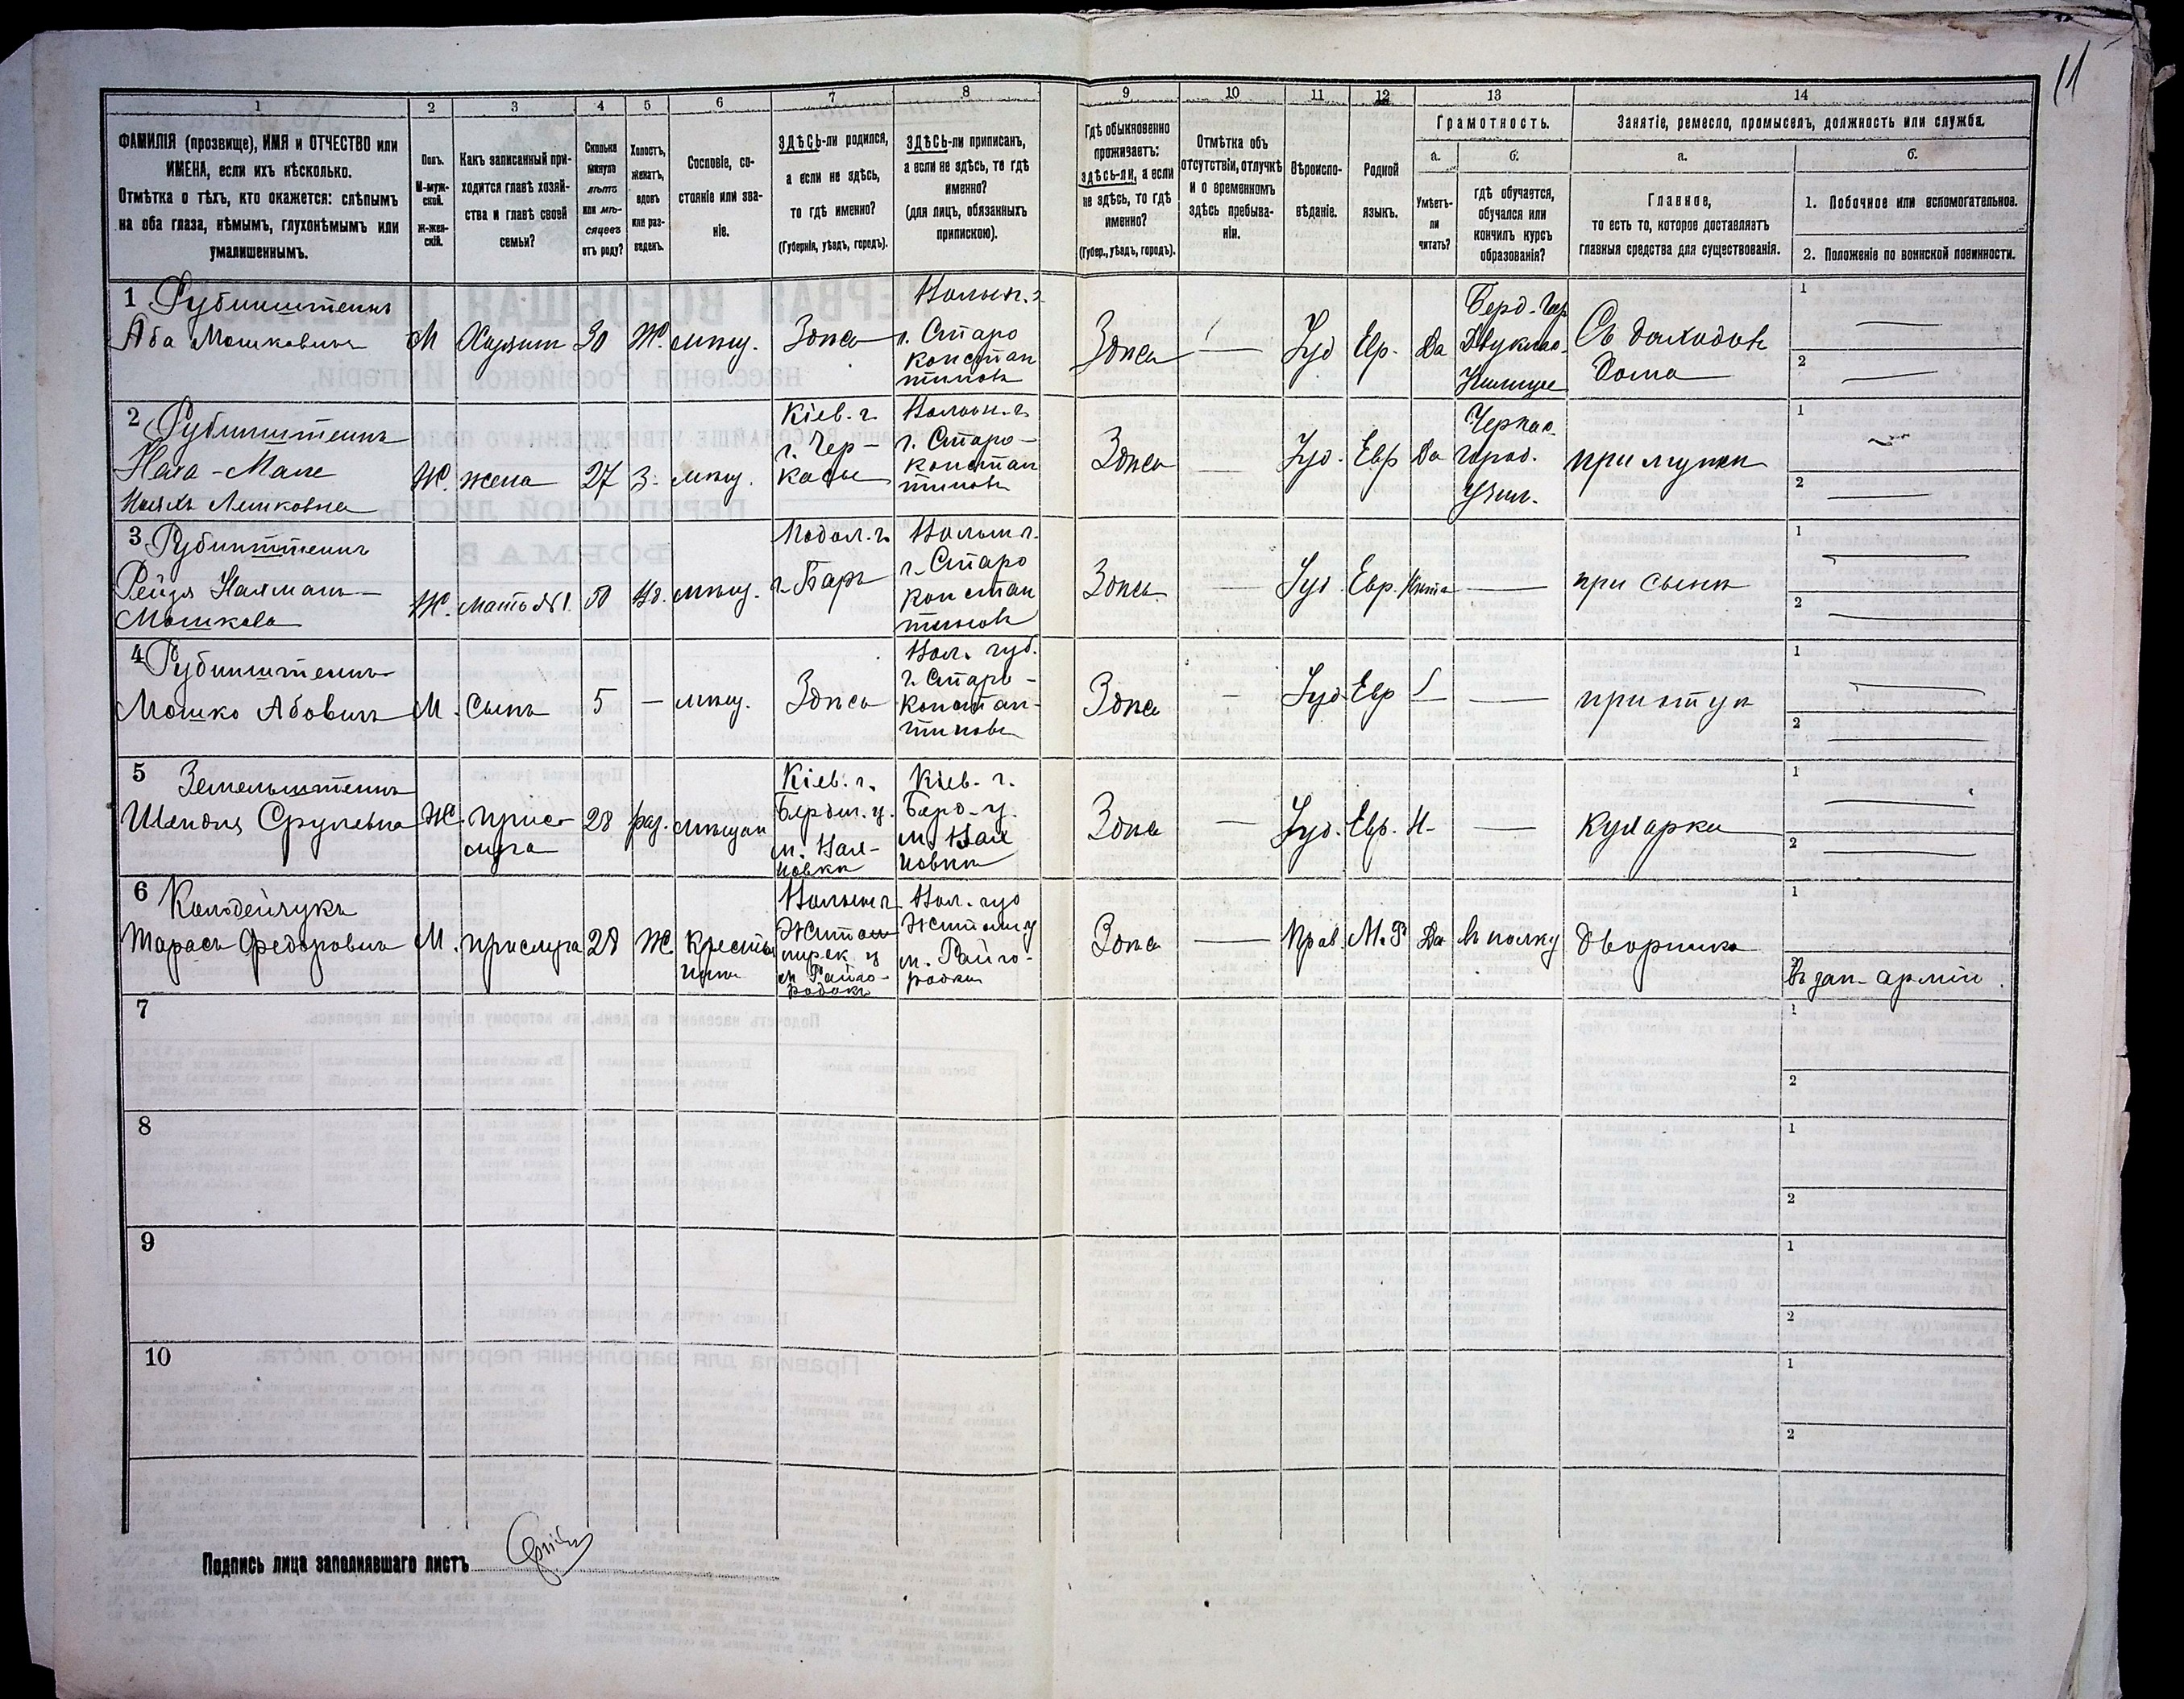 11
1 2 3 4 5 6 7 8 9 10 11 12 13 14
ФАМИЛІЯ (прозвище), ИМЯ и ОТЧЕСТВО или
ИМЕНА, если ихъ нѣсколько.
Отмѣтка о тѣхъ, кто окажется: слѣпымъ
на оба глаза, нѣмымъ, глухонѣмымъ или
умалишеннымъ.
Полъ.
М-муж-
ской.
Ж-жен-
скій.
Какъ записанный при-
ходится главѣ хозяй-
ства и главѣ своей
семьи?
Сколько
минуло
лѣтъ
или мѣ-
сяцевъ
отъ роду?
Холостъ,
женатъ,
вдовъ
или раз-
веденъ.
Сословіе, со-
стояніе или зва-
ніе.
ЗДѢСЬ-ли родился,
а если не здѣсь,
то гдѣ именно?
(Губернія, уѣздъ, городъ).
ЗДѢСЬ-ли приписанъ,
а если не здѣсь, то гдѣ
именно?
(для лицъ, обязанныхъ
припискою).
Гдѣ обыкновенно
проживаетъ:
здѣсь-ли, а если
не здѣсь, то гдѣ
именно?
(Губер., уѣздъ, городъ).
Отмѣтка объ
отсутствіи, отлучкѣ
и о временномъ
здѣсь пребыва-
ніи.
Вѣроиспо-
вѣданіе.
Родной
языкъ.
Грамотность.
а.
Умѣетъ-
ли
читать?
б.
гдѣ обучается,
обучался или
кончилъ курсъ
образованія?
Занятіе, ремесло, промыселъ, должность или служба.
а.
Главное,
то есть то, которое доставляетъ
главныя средства для существованія.
б.
1. Побочное или вспомогательное.
2. Положеніе по воинской повинности.
1 Рубинштейнъ
Аба Мошковичъ
М
Хазяинъ
30
Ж.
мѣщ.
Здѣсь
Волын. г.
г. Старо
констан
тиновъ
Здѣсь
—
Іуд
Евр.
Да
Берд.
Двуклас.
Училище
Съ доходовъ
дома
1 —
2 —
2 Рубинштейнъ
Ж.
жена
27
З.
мѣщ.
Кіев. г.
г. Чер-
касы
Волын. г.
г. Старо-
констан
тиновъ
Здѣсь
—
Іуд.
Евр
Да
Черкас.
город.
Учил.
при мужѣ
1 —
2 —
3 Рубинштейнъ
Рейзя
Мошкова
Ж.
Мать №1.
50
Вд.
мѣщ.
Подол. г.
г. Баръ
Волын г.
г. Старо
констан
тиновъ
Здѣсь
—
Іуд.
Евр.
Нѣтъ
—
при сынѣ
1 —
2 —
4 Рубинштейнъ
Мошко Абовичъ
М.
Сынъ
5
—
мѣщ.
Здѣсь
Вол. губ.
г. Старо-
констан-
тиновъ
Здѣсь
—
Іуд
Евр
—
при отцѣ
1 —
2 —
5 Земельштейнъ
Шендля Срулевна
Ж.
прис-
луга
28
раз.
мѣщан
Кіев. г.
Бердич. у.
Кіев. г.
Берд. у.
Здѣсь
—
Іуд.
Евр.
Н-
—
Кухарка
1 —
2 —
6 Колодейчукъ
Тарасъ Федоровичъ
М.
прислуга
28
Ж.
Кресть
янин
Волын г.
Житом
ирск у
м Райго-
родокъ
Вол. губ
Житом у
м. Райго-
родка
Здѣсь
—
Прав.
М. Р
Да
Въ полку
дворникъ
1
Въ зап. арміи.
7
1
2
8
1
2
9
1
2
10
1
2
Подпись лица заполнявшаго листъ